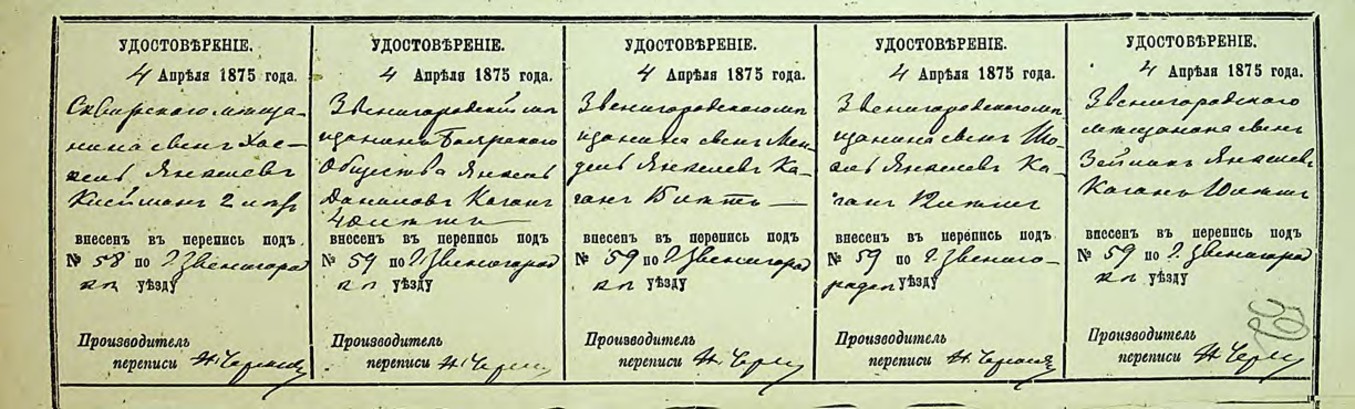 УДОСТОВѢРЕНІЕ.
4 Апрѣля 1875 года.
Сквирскаго мѣща-
нина сынъ Хас-
кель Янкелевъ
2 лѣтъ
внесенъ въ перепись подъ
№ 58 по г. Звенигород
уѣзду
Производитель
переписи
УДОСТОВѢРЕНІЕ.
4 Апрѣля 1875 года.
Звенигородскій мѣ
щанинъ Боярскаго
Общества Янкель
Даниловъ Каганъ
40 лѣтъ
внесенъ въ перепись подъ
№ 59 по г. Звенигород
уѣзду
Производитель
переписи
УДОСТОВѢРЕНІЕ.
4 Апрѣля 1875 года.
Звенигородскаго мѣ
щанина сынъ Мен-
дель Янкелевъ Ка-
ганъ 15 лѣтъ
внесенъ въ перепись подъ
№ 59 по г. Звенигород
уѣзду
Производитель
переписи
УДОСТОВѢРЕНІЕ.
4 Апрѣля 1875 года.
Звенигородскаго мѣ
щанина сынъ
Янкелевъ Ка-
ганъ 12 лѣтъ
внесенъ въ перепись подъ
№ 59 по г. Звениго-
уѣзду
Производитель
переписи
УДОСТОВѢРЕНІЕ.
4 Апрѣля 1875 года.
Звенигородскаго
мѣщанина сынъ
Янкелевъ
Каганъ 10 лѣтъ
внесенъ въ перепись подъ
№ 59 по г. Звенигород
уѣзду
Производитель
переписи